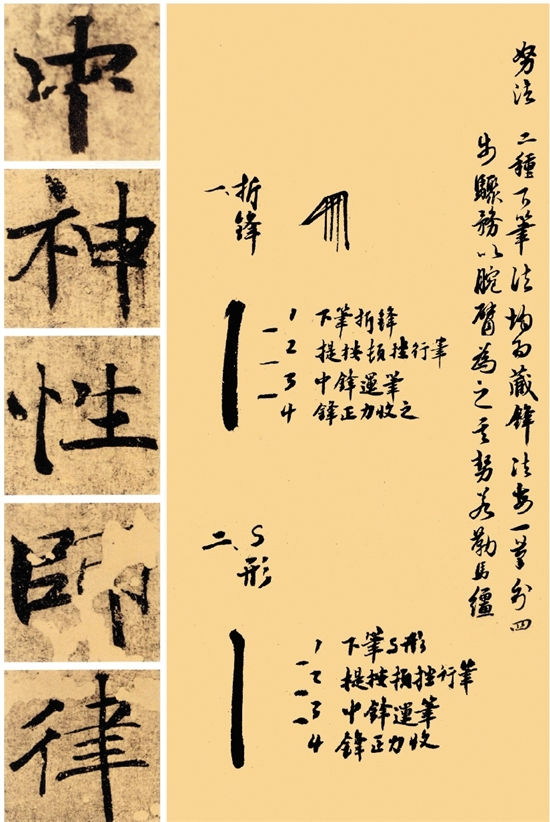 努法 二種下筆法均为藏鋒法每一筆分四
步驟務以腕臂為之其势若勒馬繮
一、折鋒
1 下筆折鋒
2 提按頓挫行筆
3 中鋒運筆
4 鋒正力收之
二、S形
1 下筆S形
2 提按頓挫行筆
3 中鋒運筆
4 鋒正力收
中
神
性
師
律